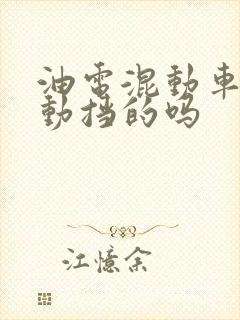 油電混動車
動挡的吗
江憶余